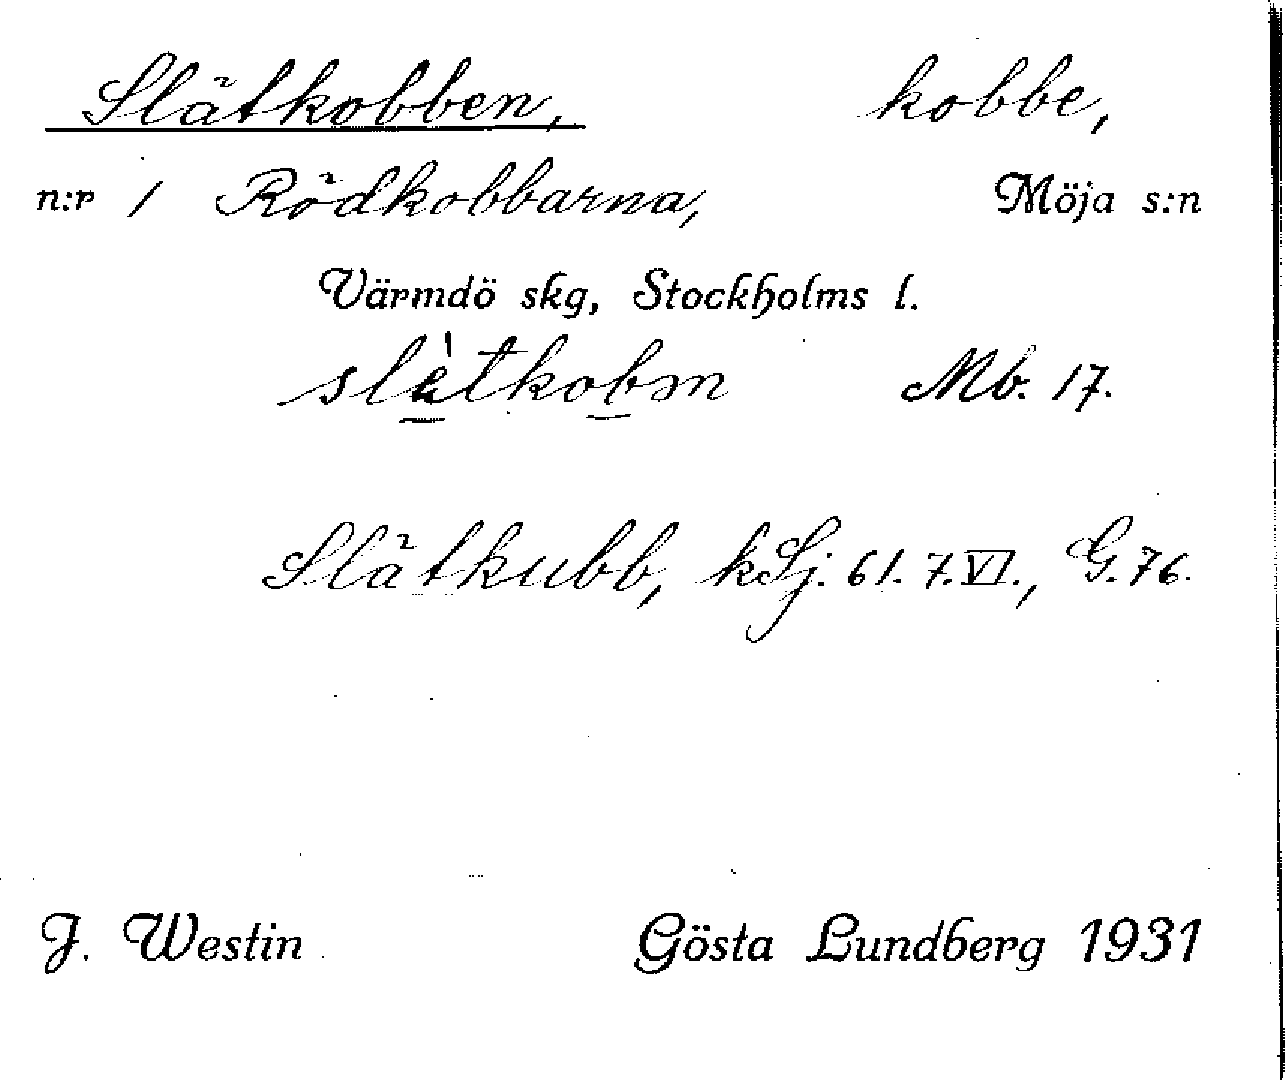 Slätkobben, kobbe,
n:r 1 Rödkobbarna, Möja s:n
Värmdö skg, Stockholms l.
slètkobm Mb. 17.
Slätkubb, kSj. 61. 7.VI., G.76.
J. Westin Gösta Lundberg 1931